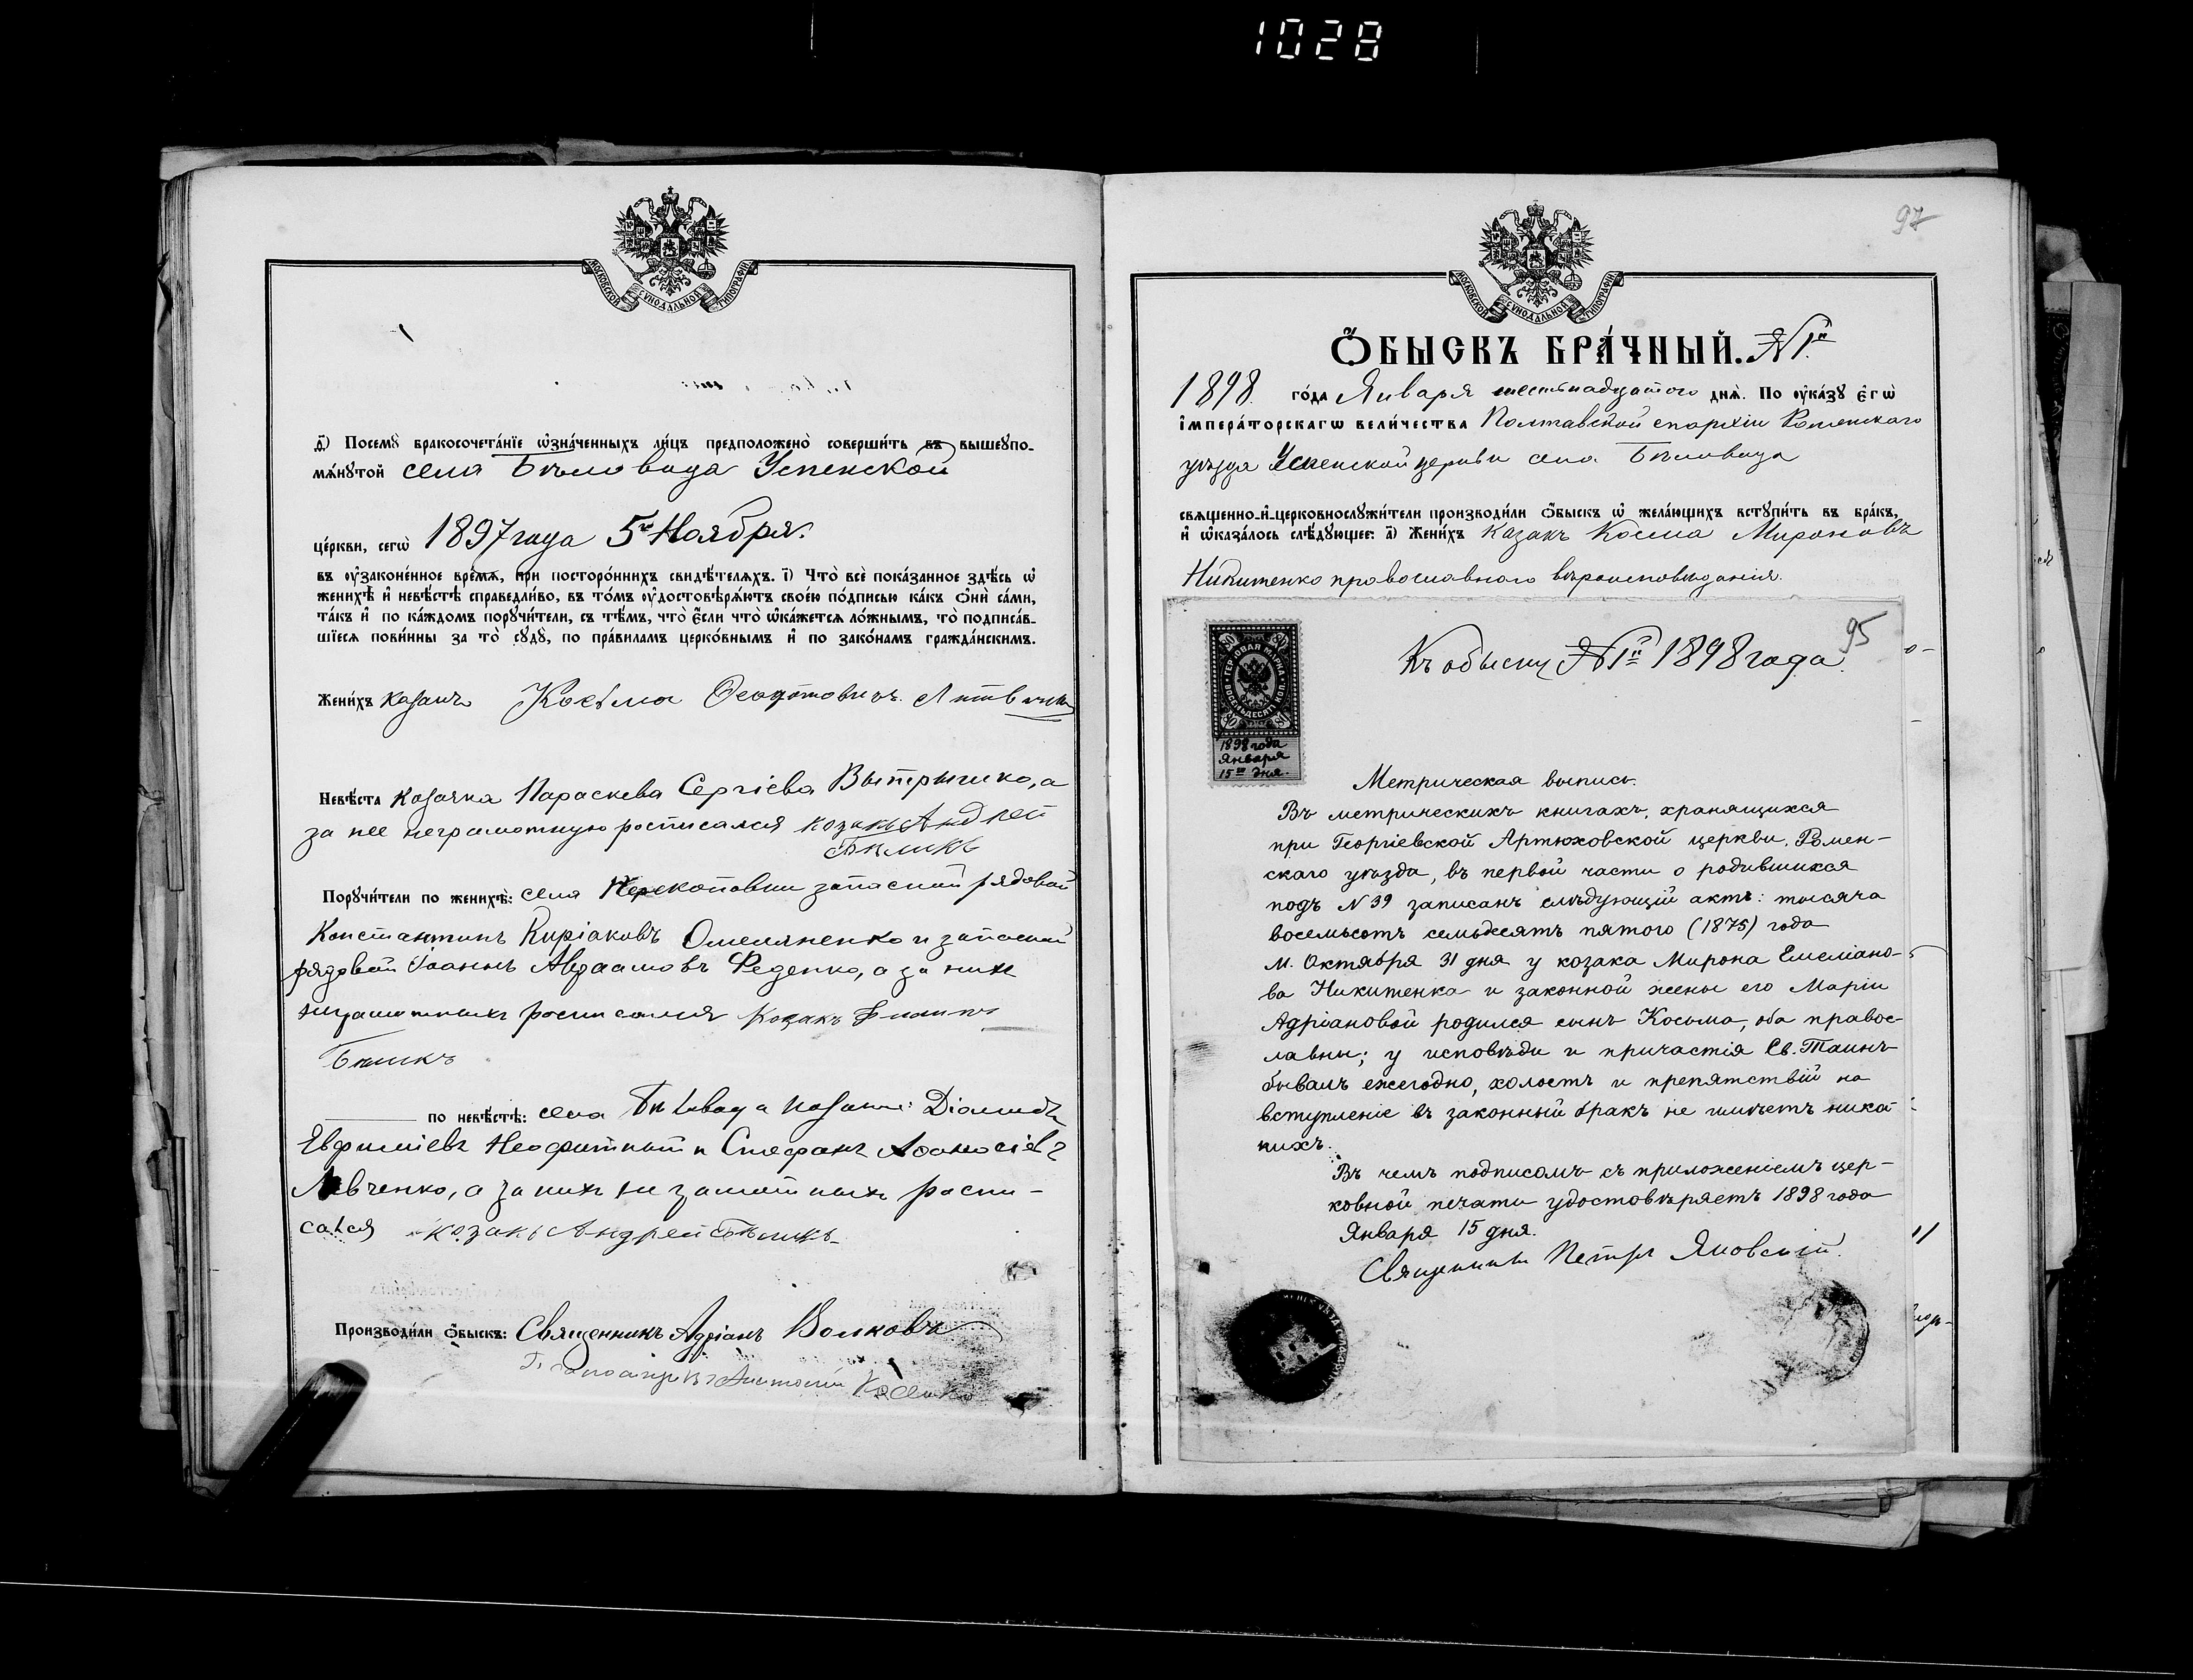 1028
МОСКОВСКОЙ СѴНОДАЛЬНОЙ ТИПОГРАФІИ
д҃) Посемꙋ̀ бракосочета́нїе ѡ҆зна́ченныхъ ли́цъ предположено̀ соверши́ть въ вышеꙋпо-
мѧ́нꙋтой села Бѣловода Успенской
це́ркви, сегѡ̀ 1897 года 5го Ноября.
въ ᲂу҆законе́нное вре́мѧ, при посторо́ннихъ свидѣ́телѧхъ. і҃) Что̀ всѐ пока́занное здѣ́сь ѡ҆
женихѣ̀ и҆ невѣ́стѣ справедли́во, въ то́мъ ᲂу҆достовѣрѧ́ютъ свое́ю по́дписью ка́къ ѻ҆нѝ са́ми,
та́къ и҆ по ка́ждомъ порꙋчи́тели, съ тѣ́мъ, что̀ є҆́сли что̀ ѡ҆ка́жетсѧ ло́жнымъ, то̀ подписа́в-
шїесѧ пови́нны за то̀ сꙋдꙋ̀, по пра́виламъ церко́внымъ и҆ по зако́намъ гражда́нскимъ.
Жени́хъ казакъ Косьма Ѳеодотовичъ
Невѣ́ста козачка Параскева Сергіева Вытрышко, а
за нее неграмотную росписался козакъ Андрей
Бѣликъ
Порꙋчи́тели по женихѣ̀: села Перекоповки запасный рядовой
Константинъ Киріаковъ Омеляненко и запасный
рядовой Іоаннъ Авраамовъ Феденко, а за нихъ
неграмотныхъ росписался козакъ
Бѣликъ
по невѣ́стѣ: села Бѣловода козаки: Діомидъ
Евфиміевъ Неофитный и Стефанъ Аѳанасіевъ
Левченко, а за нихъ неграмотныхъ роспи-
сался козакъ Андрей Бѣликъ
Производи́ли ѻ҆́быскъ: Священникъ Адріанъ Волковъ
97
МОСКОВСКОЙ СѴНОДАЛЬНОЙ ТИПОГРАФІИ
Ѻ҆́БЫСКЪ БРА́ЧНЫЙ. №1й
1898 го́да Января шестнадцатого днѧ̀. По ᲂу҆ка́зꙋ є҆гѡ̀
і҆мпера́торскагѡ вели́чества Полтавской епархіи Роменскаго
уѣзда Успенской церкви села Бѣловода
свѧщенно-и҆-церковнослꙋжи́тели производи́ли ѻ҆́быскъ ѡ҆ жела́ющихъ встꙋпи́ть въ бра́къ,
и҆ ѡ҆каза́лось слѣ́дꙋющее: а҃) Жени́хъ казакъ Косма Мироновъ
Никитенко православнаго вѣроисповѣданія.
95
Къ обыску №1й 1898 года.
ГЕРБОВАЯ МАРКА ВОСЕМЬДЕСЯТ КОП.
80
1898 года
Января
15го дня.
Метрическая выпись.
Въ метрическихъ книгахъ, хранящихся
при Георгіевской Артюховской церкви, Ромен-
скаго уѣзда, въ первой части о родившихся
подъ № 39 записанъ слѣдующій актъ: тысяча
восемьсотъ семьдесятъ пятого (1875) года
м. Октября 31 дня у козака Мирона Емеліано-
ва Никитенка и законной жены его Маріи
Адріановой родился сынъ Косьма, оба правос-
лавны; у исповѣди и причастія Св. Таинъ
бывалъ ежегодно, холостъ и препятствій на
вступленіе въ законный бракъ не имѣетъ ника-
кихъ.
Въ чемъ подписомъ съ приложеніемъ цер-
ковной печати удостовѣряетъ 1898 года
Января 15 дня.
Священникъ Петръ Яновскій.